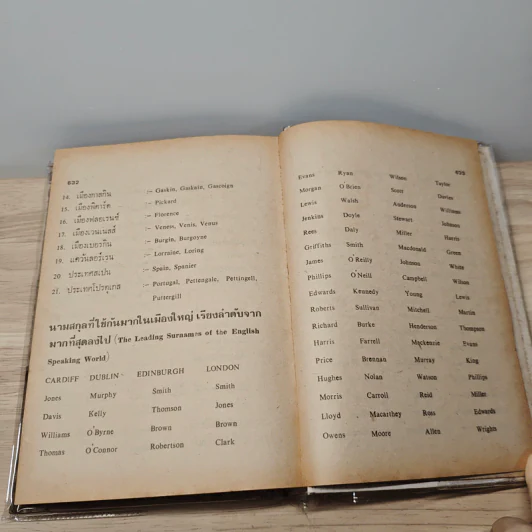 632
14. เมืองกาสกัน :- Gaskin, Gaskain, Gascoign
15. เมืองพิคาร์ด :- Pickard
16. เมืองฟลอเรนซ์ :- Florence
17. เมืองเวนเนสส์ :- Veness, Venis, Venus
18. เมืองเบอร์กัน :- Burgin, Burgoyne
19. แคว้นลอร์เรน :- Lorraine, Loring
20 ประเทศสเปน :- Spain, Spanier
21. ประเทศโปรตุเกส :- Portugal, Pettengale, Pettingell,
Puttergill
นามสกุลที่ใช้กันมากในเมืองใหญ่ เรียงลำดับจาก
มากที่สุดลงไป (The Leading Surnames of the English
Speaking World)
CARDIFF DUBLIN EDINBURGH LONDON
Jones Murphy Smith Smith
Davis Kelly Thomson Jones
Williams O'Byrne Brown Brown
Thomas O'Connor Robertson Clark
633
Evans Ryan Wilson Taylor
Morgan O'Brien Scott Davies
Lewis Walsh Anderson Williams
Jenkins Doyle Stewart Johnson
Rees Daly Miller Harris
Griffiths Smith Macdonald Green
James O'Reilly Johnson White
Phillips O'Neill Campbell Wilson
Edwards Kennedy Young Lewis
Roberts Sullivan Mitchell Martin
Richard Burke Henderson Thompson
Harris Farrell Mackenzie Evans
Price Brennan Murray King
Hughes Nolan Watson Phillips
Morris Carroll Reid Miller
Lloyd Macarthey Ross Edwards
Owens Moore Allen Wright